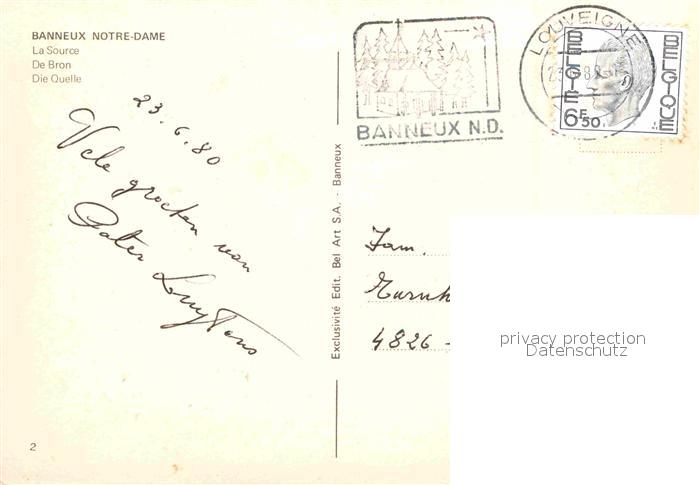 BANNEUX NOTRE-DAME
La Source
De Bron
Die Quelle
23.6.80
Vele groeten van
Pater Luytens
2
Exclusivité Edit. Bel Art S.A. - Banneux
BANNEUX N.D.
LOUVEIGNE
BELGIE
BELGIQUE
6F50
Fam.
4826-
privacy protection
Datenschutz